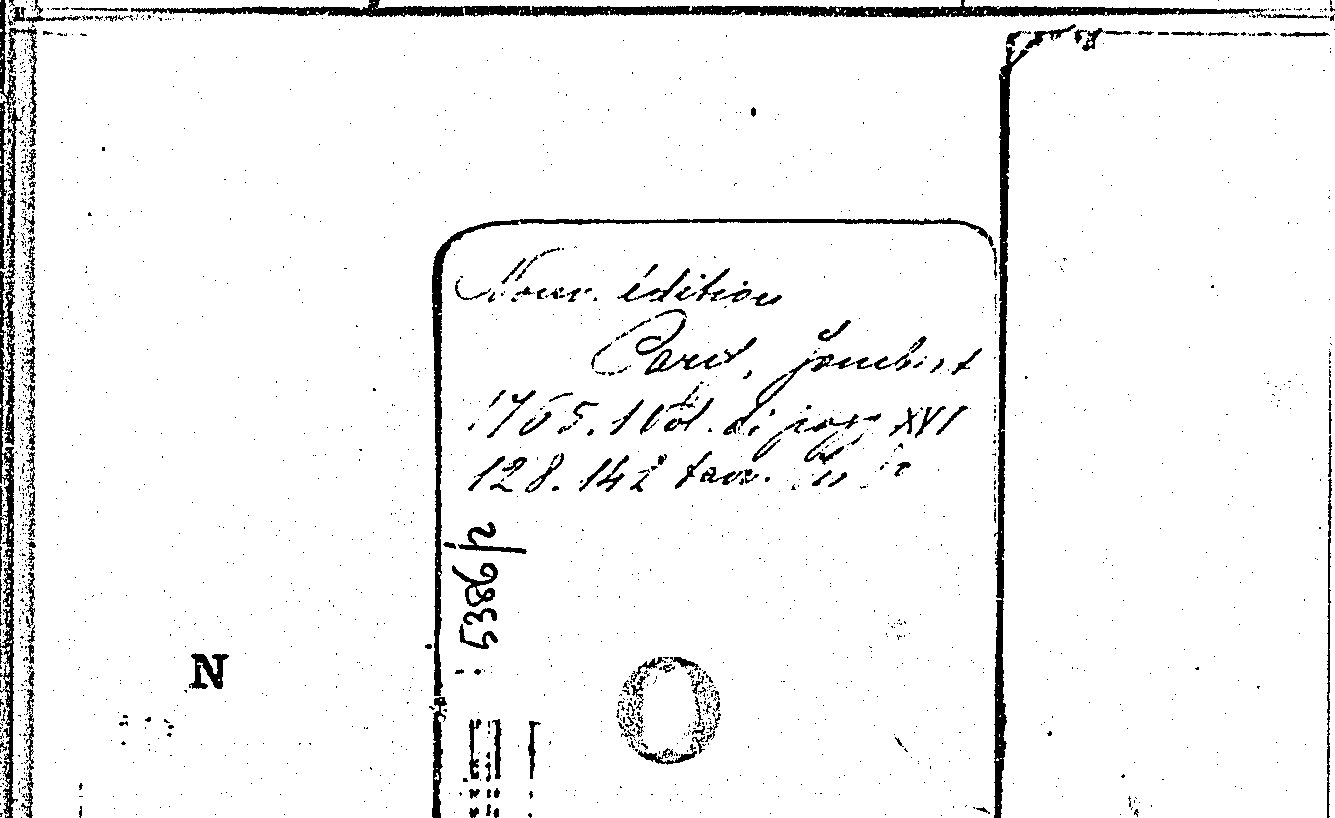 Nouv. édition
Paris, Joubert
1765. 1 vol. di pag XVI
128. 142 tav.
5386/2
N